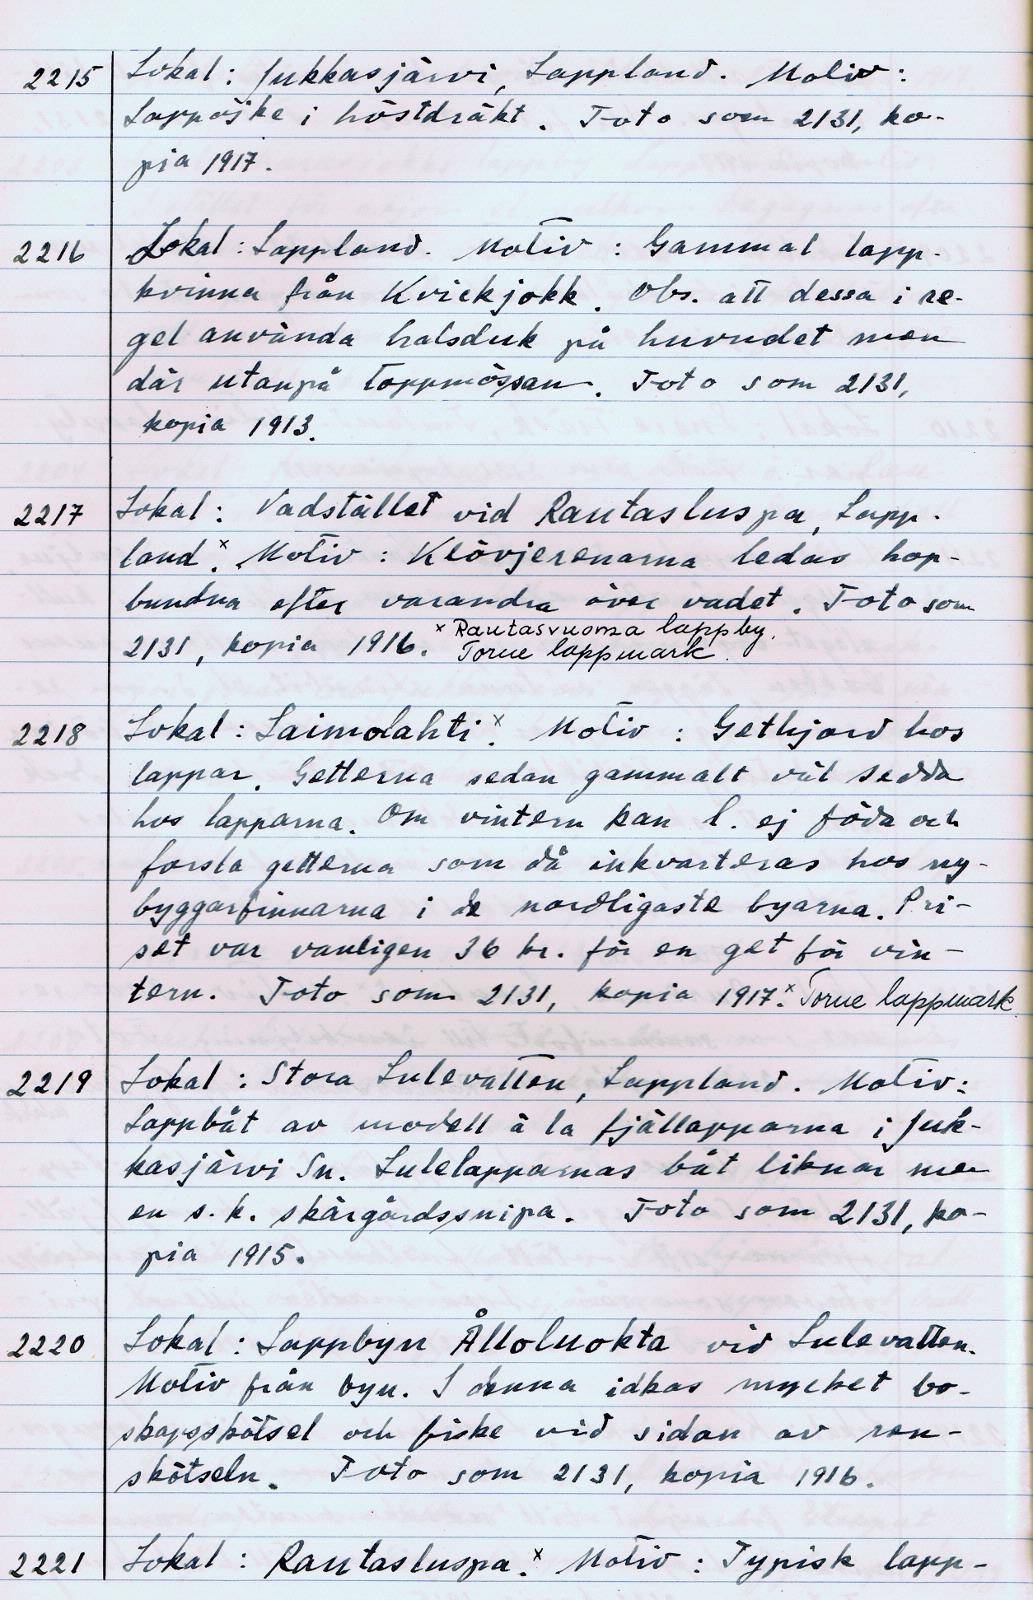 2215 Lokal: Jukkasjärvi, Lappland. Motiv:
Lappojke i höstdräkt. Foto som 2131, ko-
pia 1917.
2216 Lokal: Lappland. Motiv: Gammal lapp-
kvinna från Kvickjokk. Obs. att dessa i re-
gel använda halsduk på huvudet men
där utanpå toppmössan. Foto som 2131,
kopia 1913.
2217 Lokal: Vadstället vid Rautasluspa, Lapp-
land.x Motiv: Klövjerenarna ledas hop-
bundna efter varandra över vadet. Foto som
2131, kopia 1916. x Rautasvuoma lappby.
Torne lappmark.
2218 Lokal: Laimolahti.x Motiv: Gethjord hos
lappar. Getterna sedan gammalt väl sedda
hos lapparna. Om vintern kan l. ej föda och
forsla getterna som då inkvarteras hos ny-
byggarfinnarna i de nordligaste byarna. Pri-
set var vanligen 36 kr. för en get för vin-
tern. Foto som 2131, kopia 1917. x Torne lappmark.
2219 Lokal: Stora Lulevatten, Lappland. Motiv:
Lappbåt av modell à la fjällapparna i Juk-
kasjärvi Sn. Lulelapparnas båt liknar mer
en s.k. skärgårdssnipa. Foto som 2131, ko-
pia 1915.
2220 Lokal: Lappbyn Ålloluokta vid Lulevatten.
Motiv från byn. I denna idkas mycket bo-
skapsskötsel och fiske vid sidan av ren-
skötseln. Foto som 2131, kopia 1916.
2221 Lokal: Rautasluspa.x Motiv: Typisk lapp-